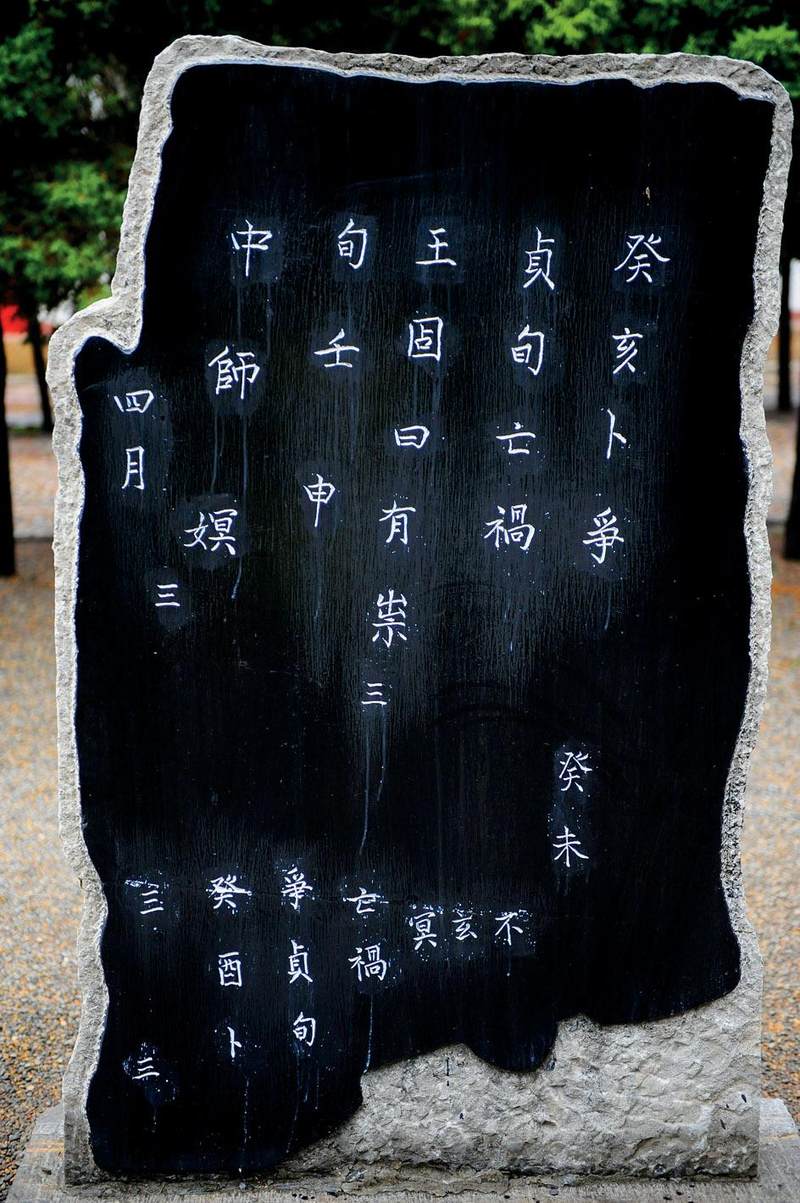 癸亥卜爭
貞旬亡禍
王固曰有祟三
旬壬申
中師嫇
四月
三
癸未
不玄冥
亡禍
爭貞旬
癸酉卜
三
三